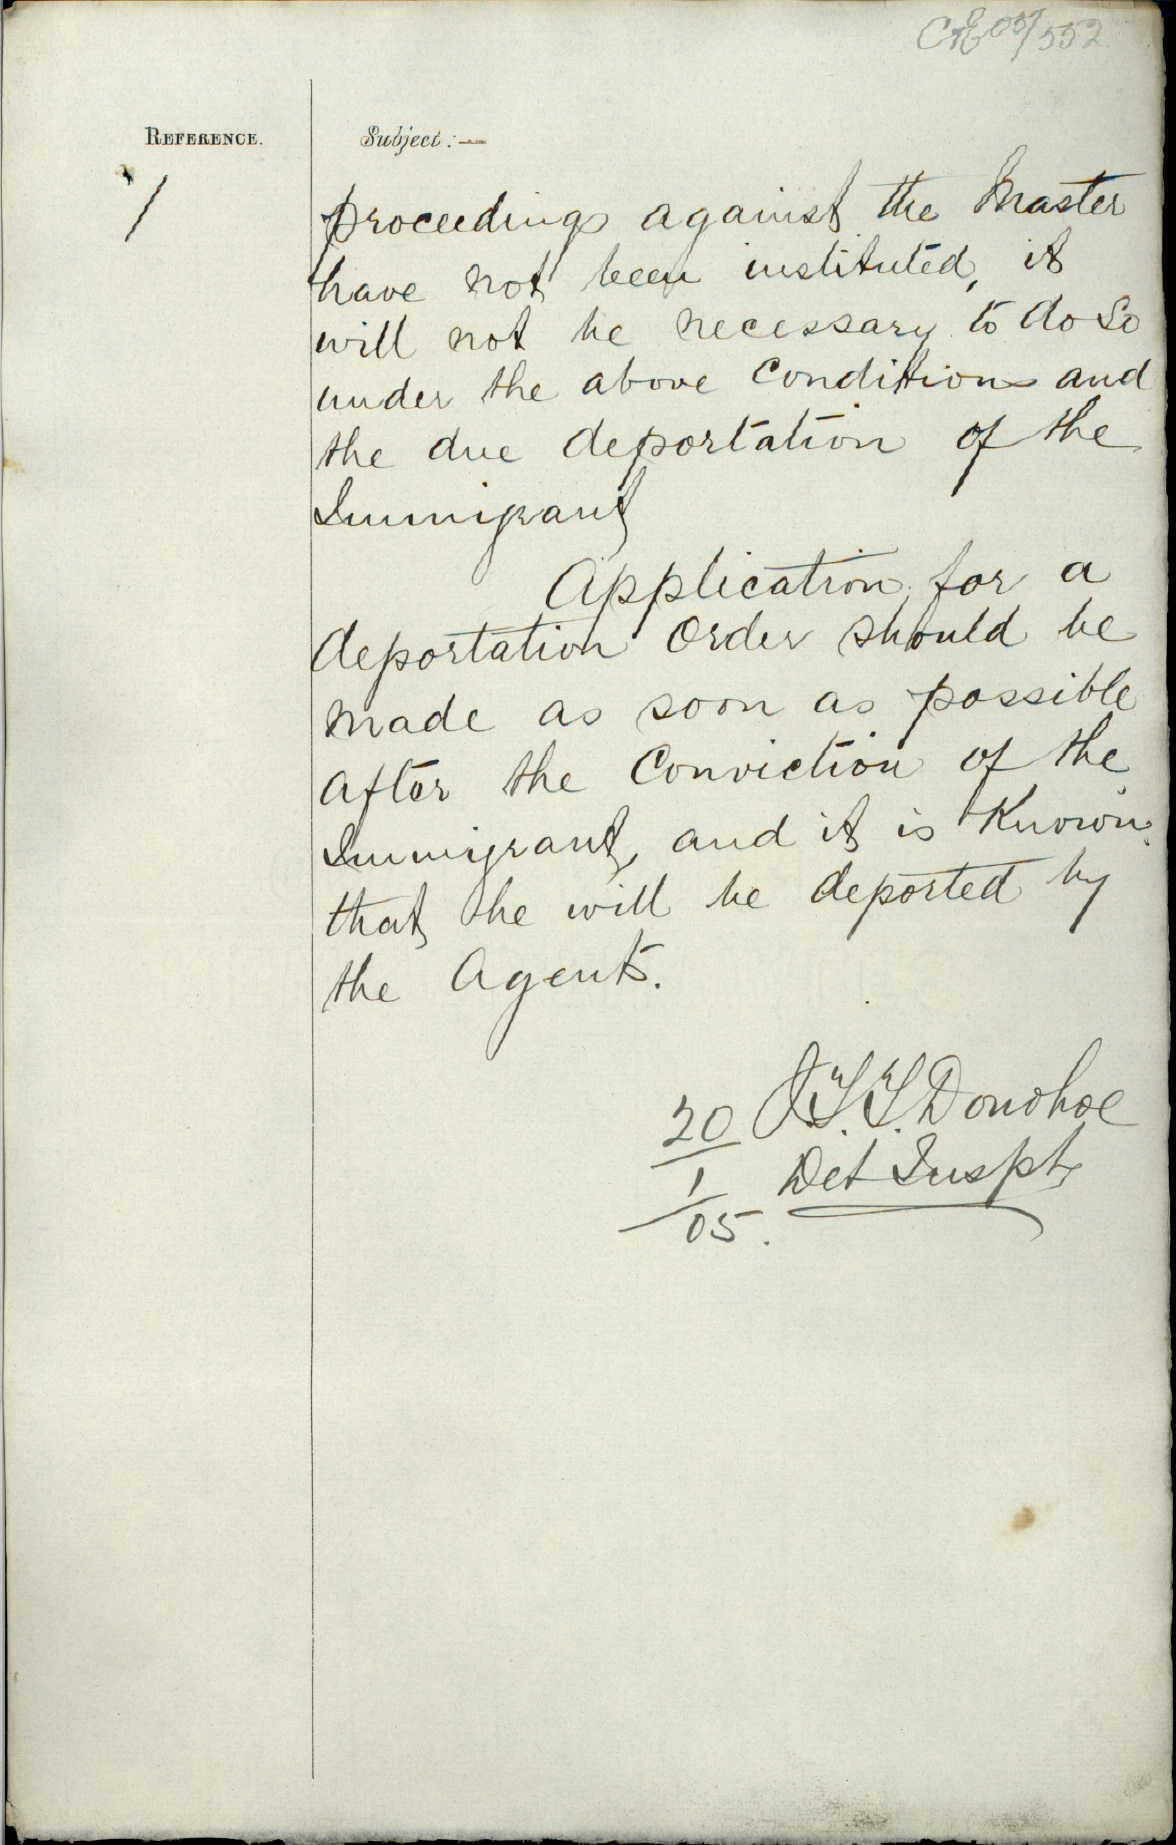 C&E 05/552
REFERENCE.
Subject:—
/
proceedings against the Master
have not been instituted, it
will not be necessary to do so
under the above Conditions and
the due deportation of the
Immigrant
Application for a
deportation Order should be
made as soon as possible
after the Conviction of the
Immigrant, and it is Known
that he will be deported by
the Agents.
Donohoe
Det Inspt
20
1
05.